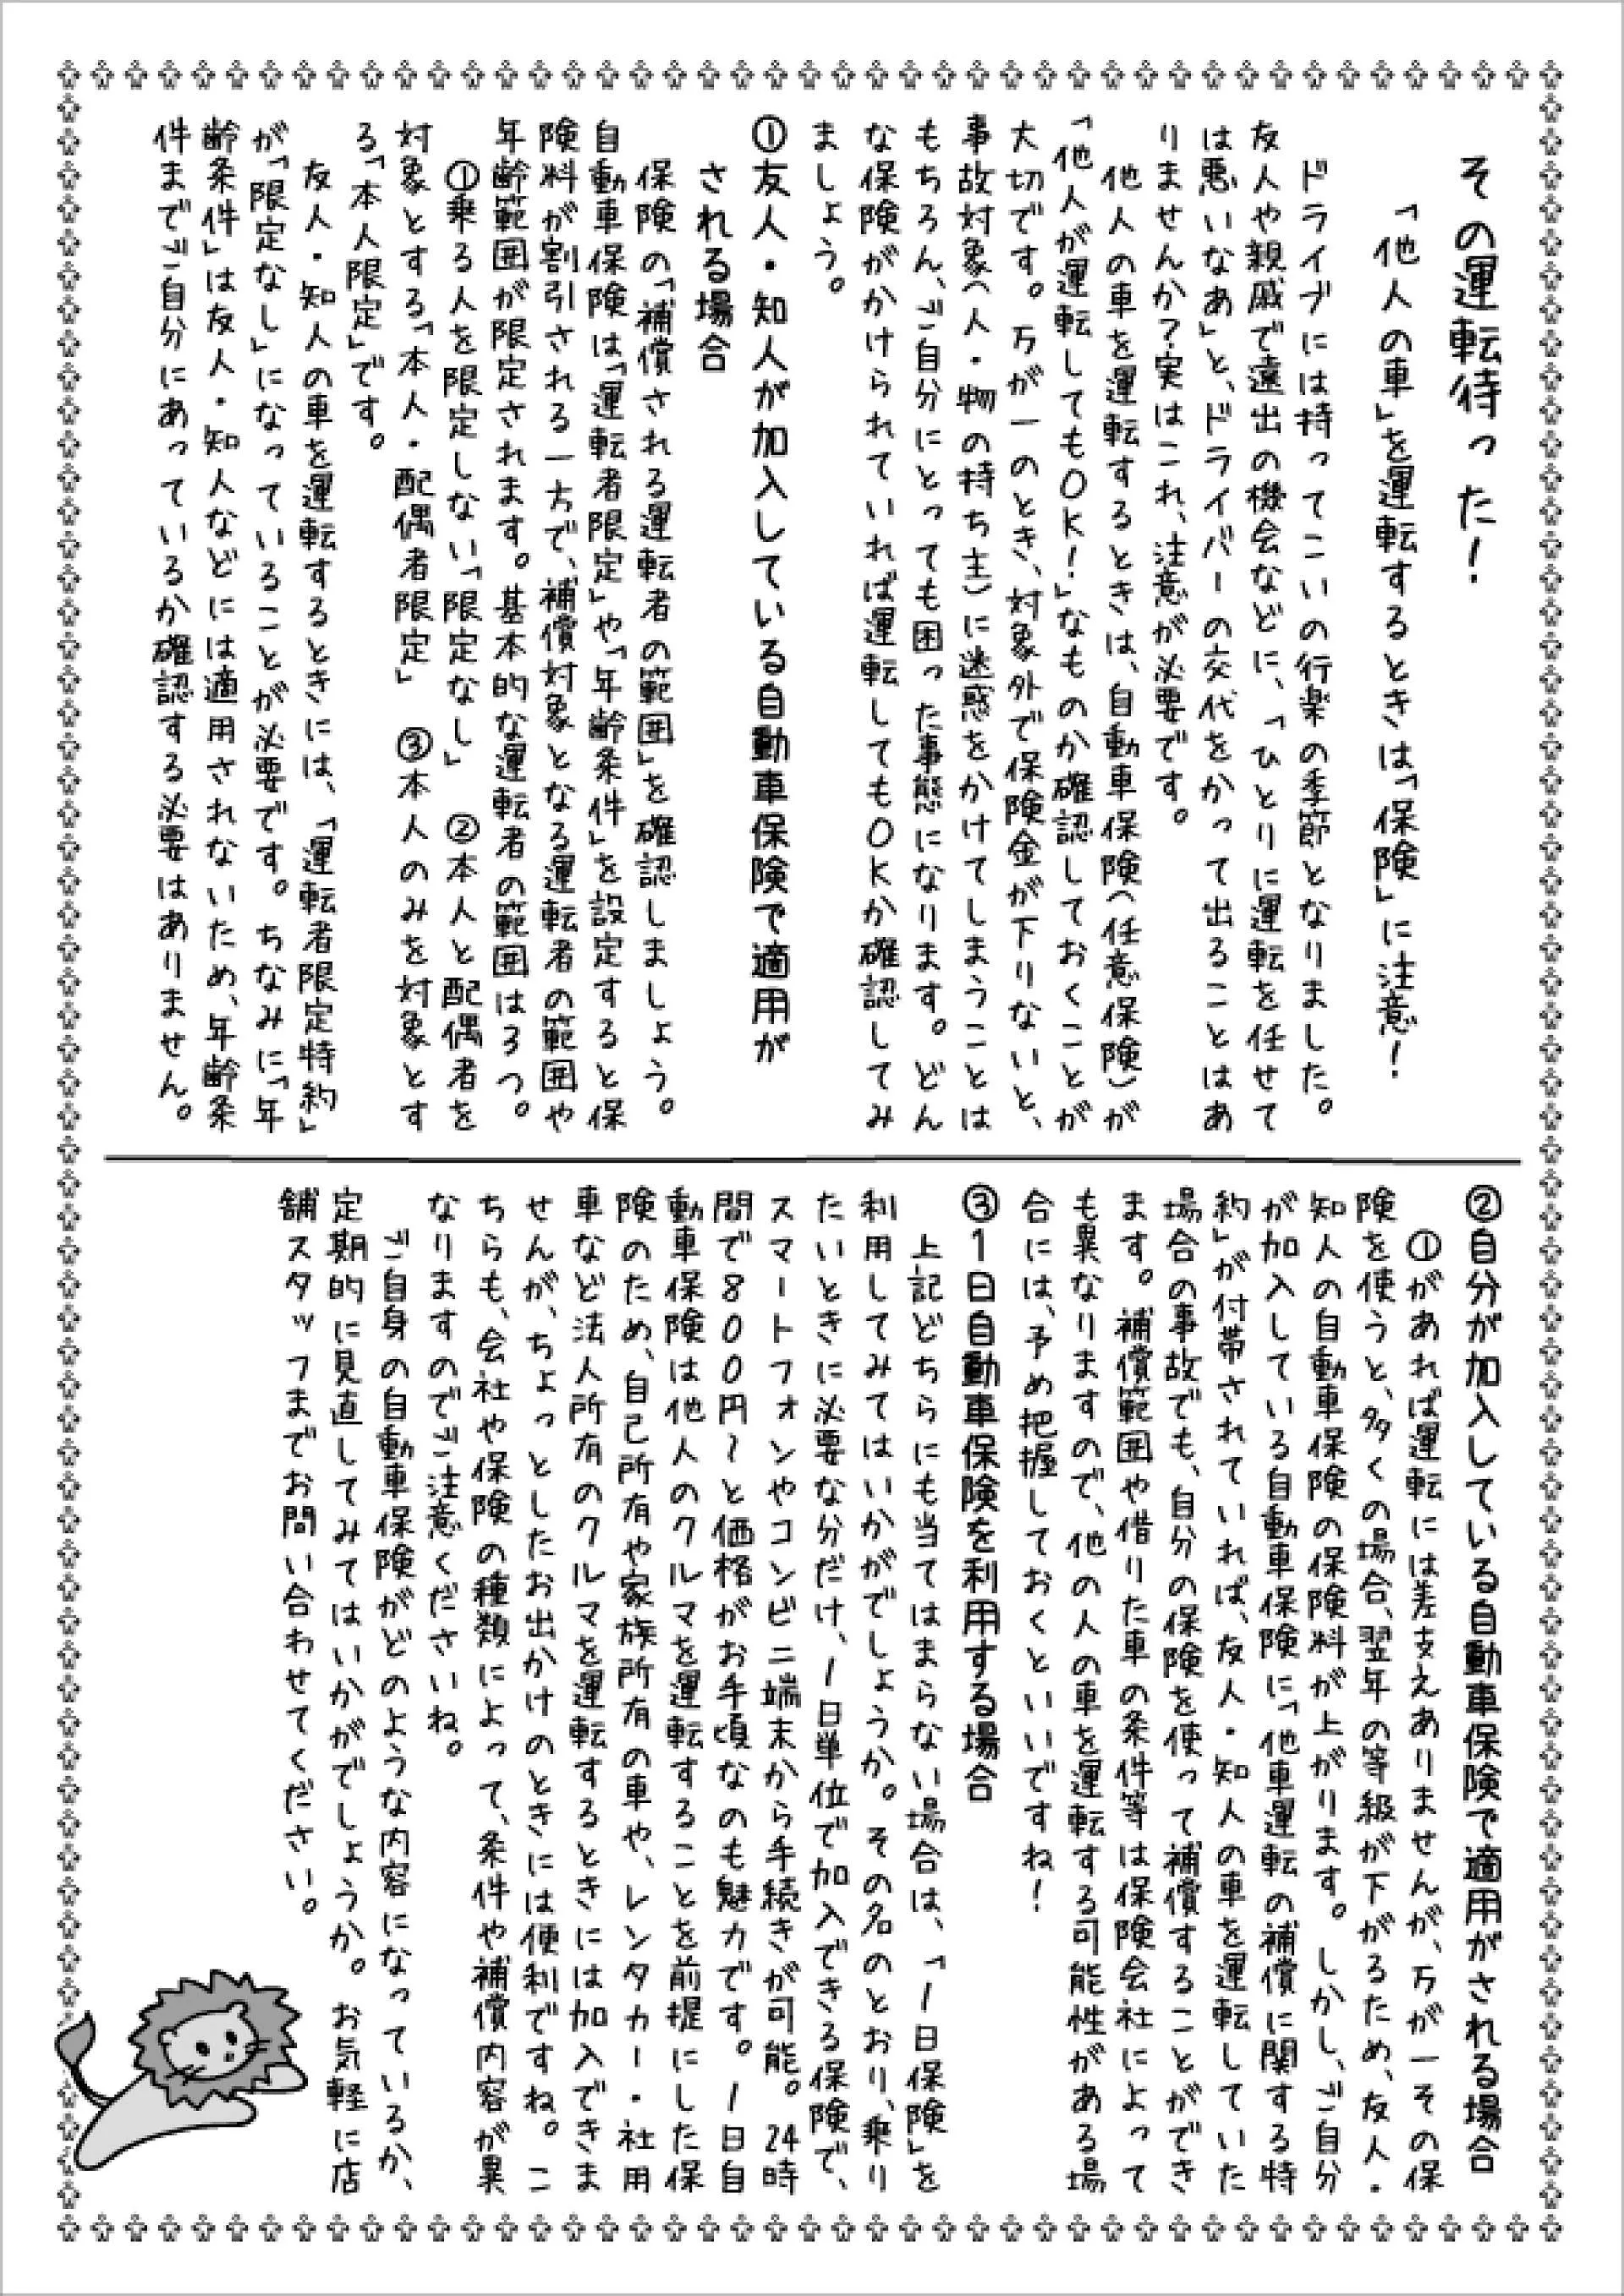 その運転待った！
「他人の車」を運転するときは「保険」に注意！
ドライブには持ってこいの行楽の季節となりました。
友人や親戚で遠出の機会などに、「ひとりに運転を任せて
は悪いなあ」と、ドライバーの交代をかって出ることはあ
りませんか？実はこれ、注意が必要です。
他人の車を運転するときは、自動車保険（任意保険）が
「他人が運転してもＯＫ！」なものか確認しておくことが
大切です。万が一のとき、対象外で保険金が下りないと、
事故対象（人・物の持ち主）に迷惑をかけてしまうことは
もちろん、ご自分にとっても困った事態になります。どん
な保険がかけられていれば運転してもＯＫか確認してみ
ましょう。
①友人・知人が加入している自動車保険で適用が
される場合
保険の「補償される運転者の範囲」を確認しましょう。
自動車保険は「運転者限定」や「年齢条件」を設定すると保
険料が割引される一方で、補償対象となる運転者の範囲や
年齢範囲が限定されます。基本的な運転者の範囲は３つ。
①乗る人を限定しない「限定なし」　②本人と配偶者を
対象とする「本人・配偶者限定」　③本人のみを対象とす
る「本人限定」です。
友人・知人の車を運転するときには、「運転者限定特約」
が「限定なし」になっていることが必要です。ちなみに「年
齢条件」は友人・知人などには適用されないため、年齢条
件までご自分にあっているか確認する必要はありません。
②自分が加入している自動車保険で適用がされる場合
①があれば運転には差支えありませんが、万が一その保
険を使うと、多くの場合、翌年の等級が下がるため、友人・
知人の自動車保険の保険料が上がります。しかし、ご自分
が加入している自動車保険に「他車運転の補償に関する特
約」が付帯されていれば、友人・知人の車を運転していた
場合の事故でも、自分の保険を使って補償することができ
ます。補償範囲や借りた車の条件等は保険会社によって
も異なりますので、他の人の車を運転する可能性がある場
合には、予め把握しておくといいですね！
③１日自動車保険を利用する場合
上記どちらにも当てはまらない場合は、「１日保険」を
利用してみてはいかがでしょうか。その名のとおり、乗り
たいときに必要な分だけ、１日単位で加入できる保険で、
スマートフォンやコンビニ端末から手続きが可能。24時
間で８００円～と価格がお手頃なのも魅力です。１日自
動車保険は他人のクルマを運転することを前提にした保
険のため、自己所有や家族所有の車や、レンタカー・社用
車など法人所有のクルマを運転するときには加入できま
せんが、ちょっとしたお出かけのときには便利ですね。こ
ちらも、会社や保険の種類によって、条件や補償内容が異
なりますのでご注意くださいね。
ご自身の自動車保険がどのような内容になっているか、
定期的に見直してみてはいかがでしょうか。お気軽に店
舗スタッフまでお問い合わせてください。